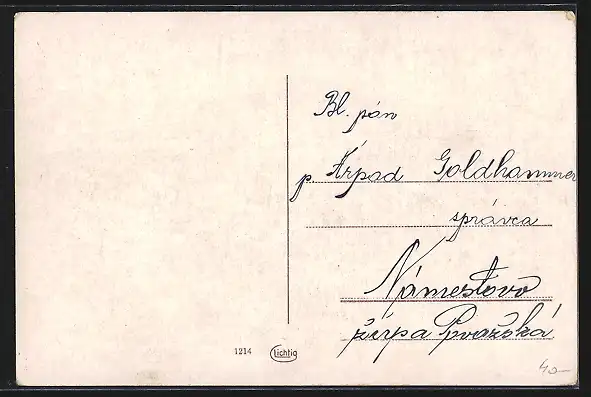 Bl. pán
p. Árpad Goldhammer
správca
Námestovo
župa Považská
1214 Lichtig
40-